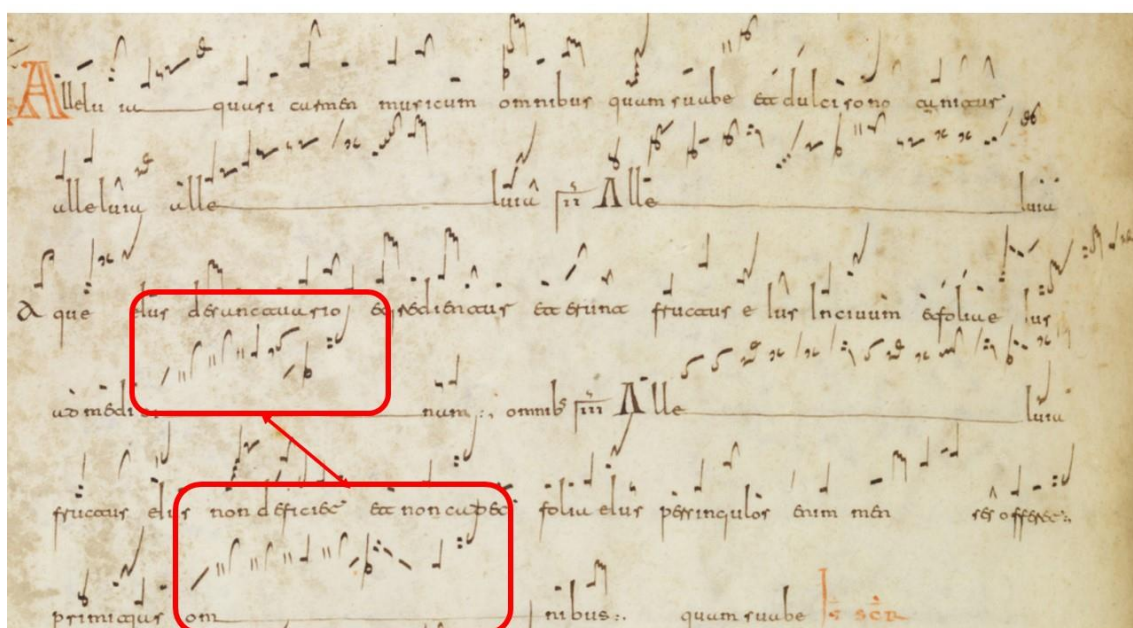 Allelu ia quasi carmen musicum omnibus quam suabe et dulcisono canitur
alleluia alle luia II Alle luia
Aque eius de sanctuario egredientur et erunt fructus eius In civum et folia eius
ad medici nam omnibs III Alle luia
fructus eius non deficiet et non cadet folia eius per singulos enim men ses offeret
primitius om nibus quam suabe